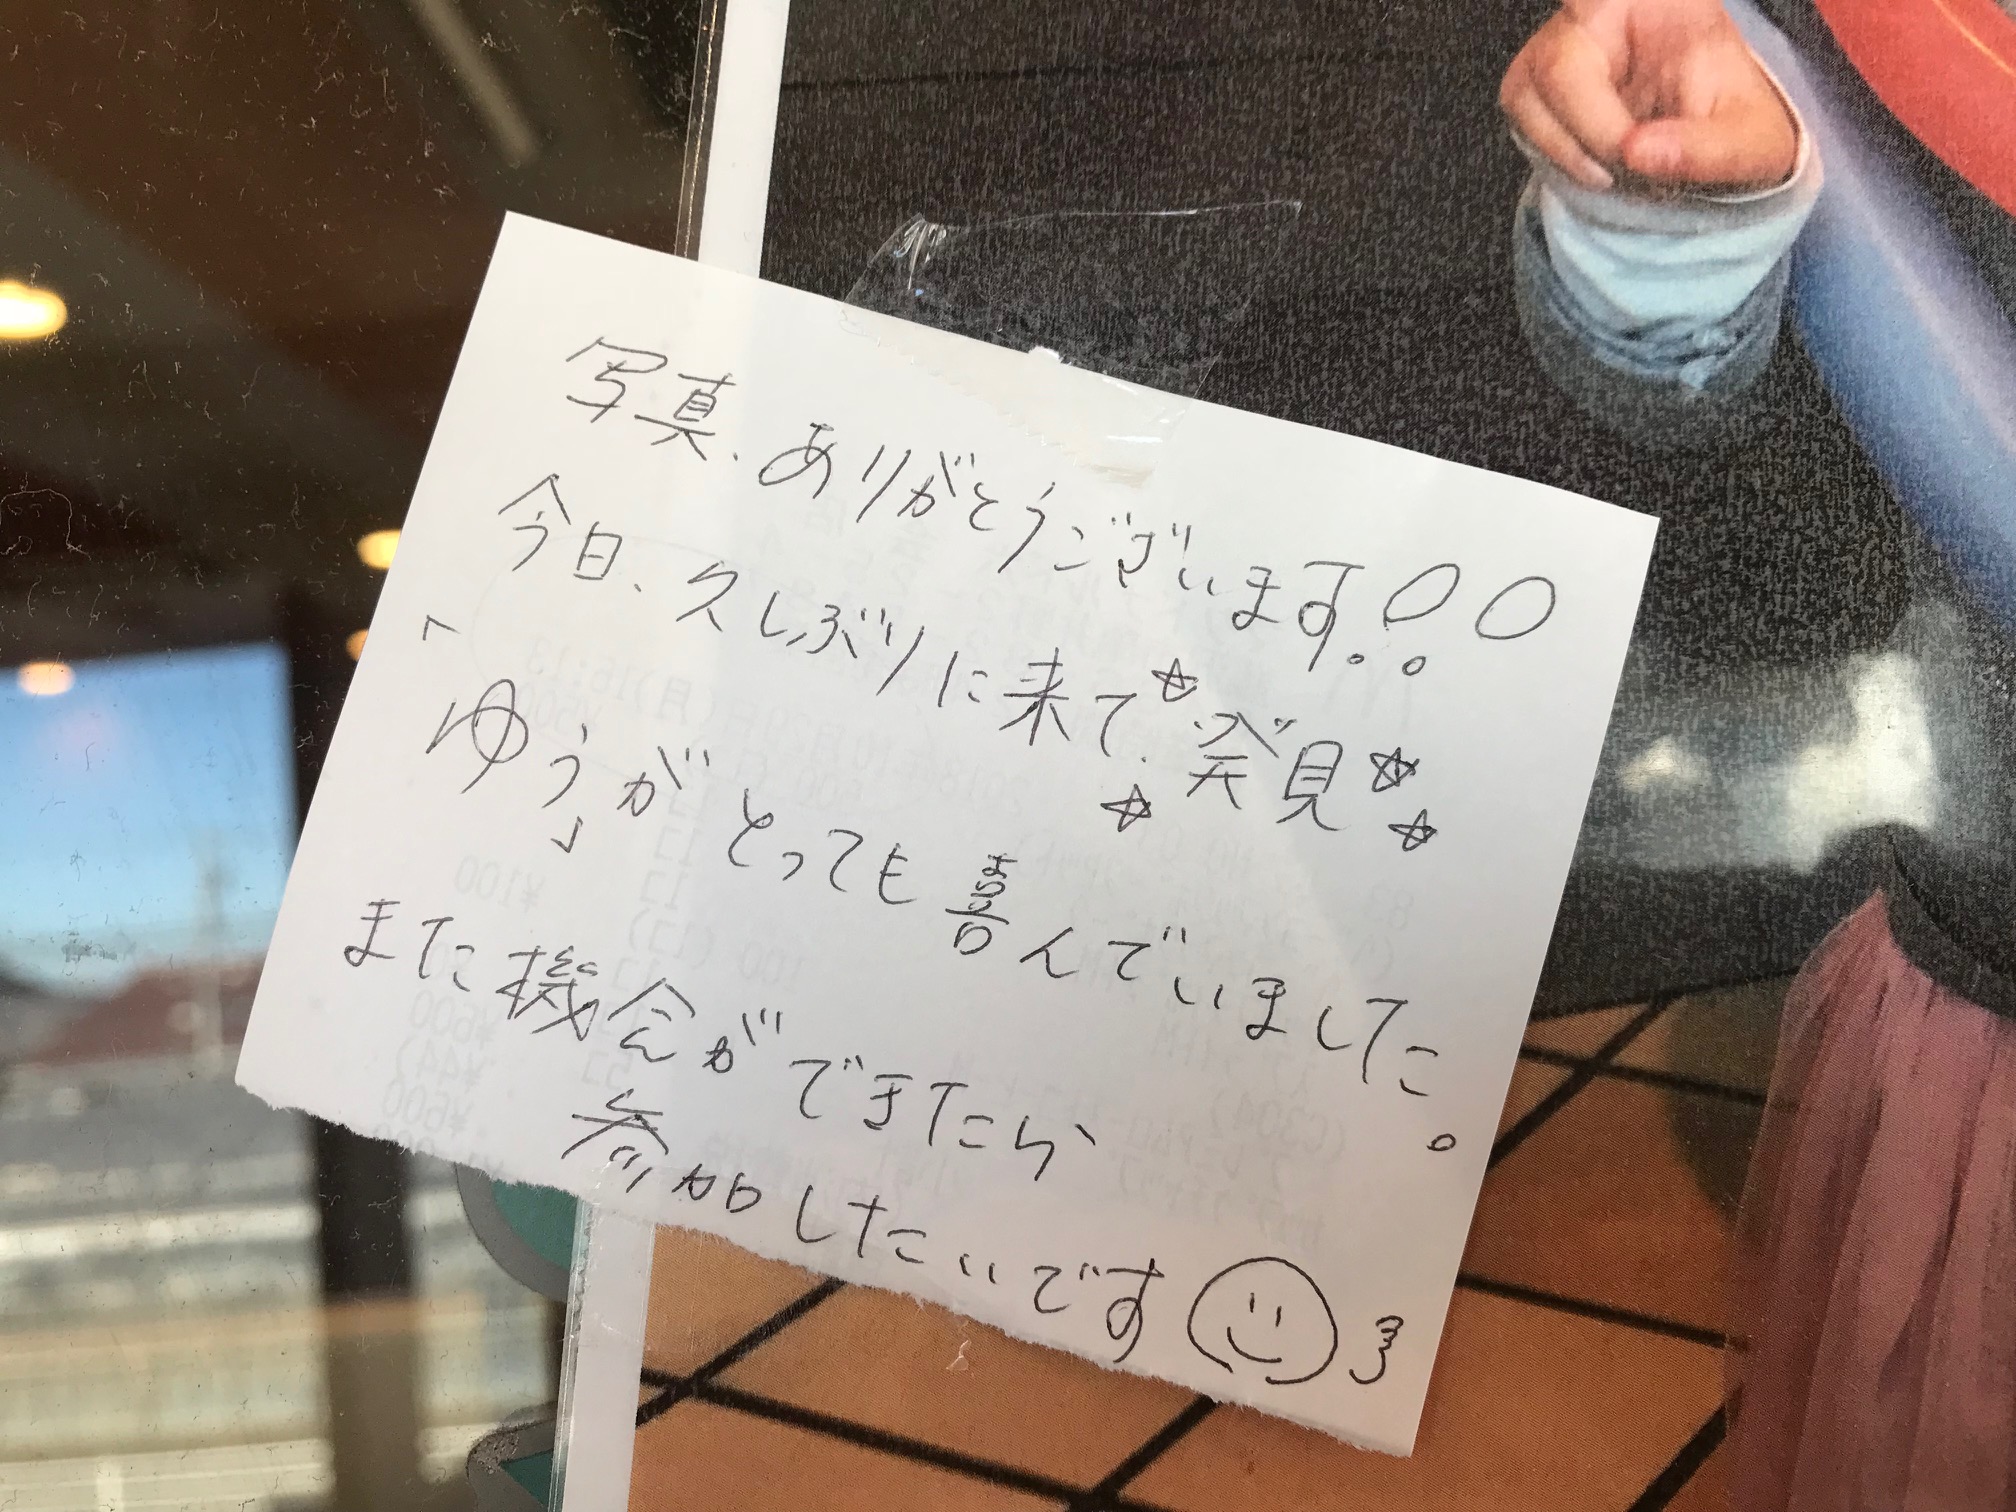 写真、ありがとうございます!!
今日、久しぶりに来て、☆発見☆
☆ ☆
「ゆう」がとっても喜んでいました。
また機会ができたら
参加したいです